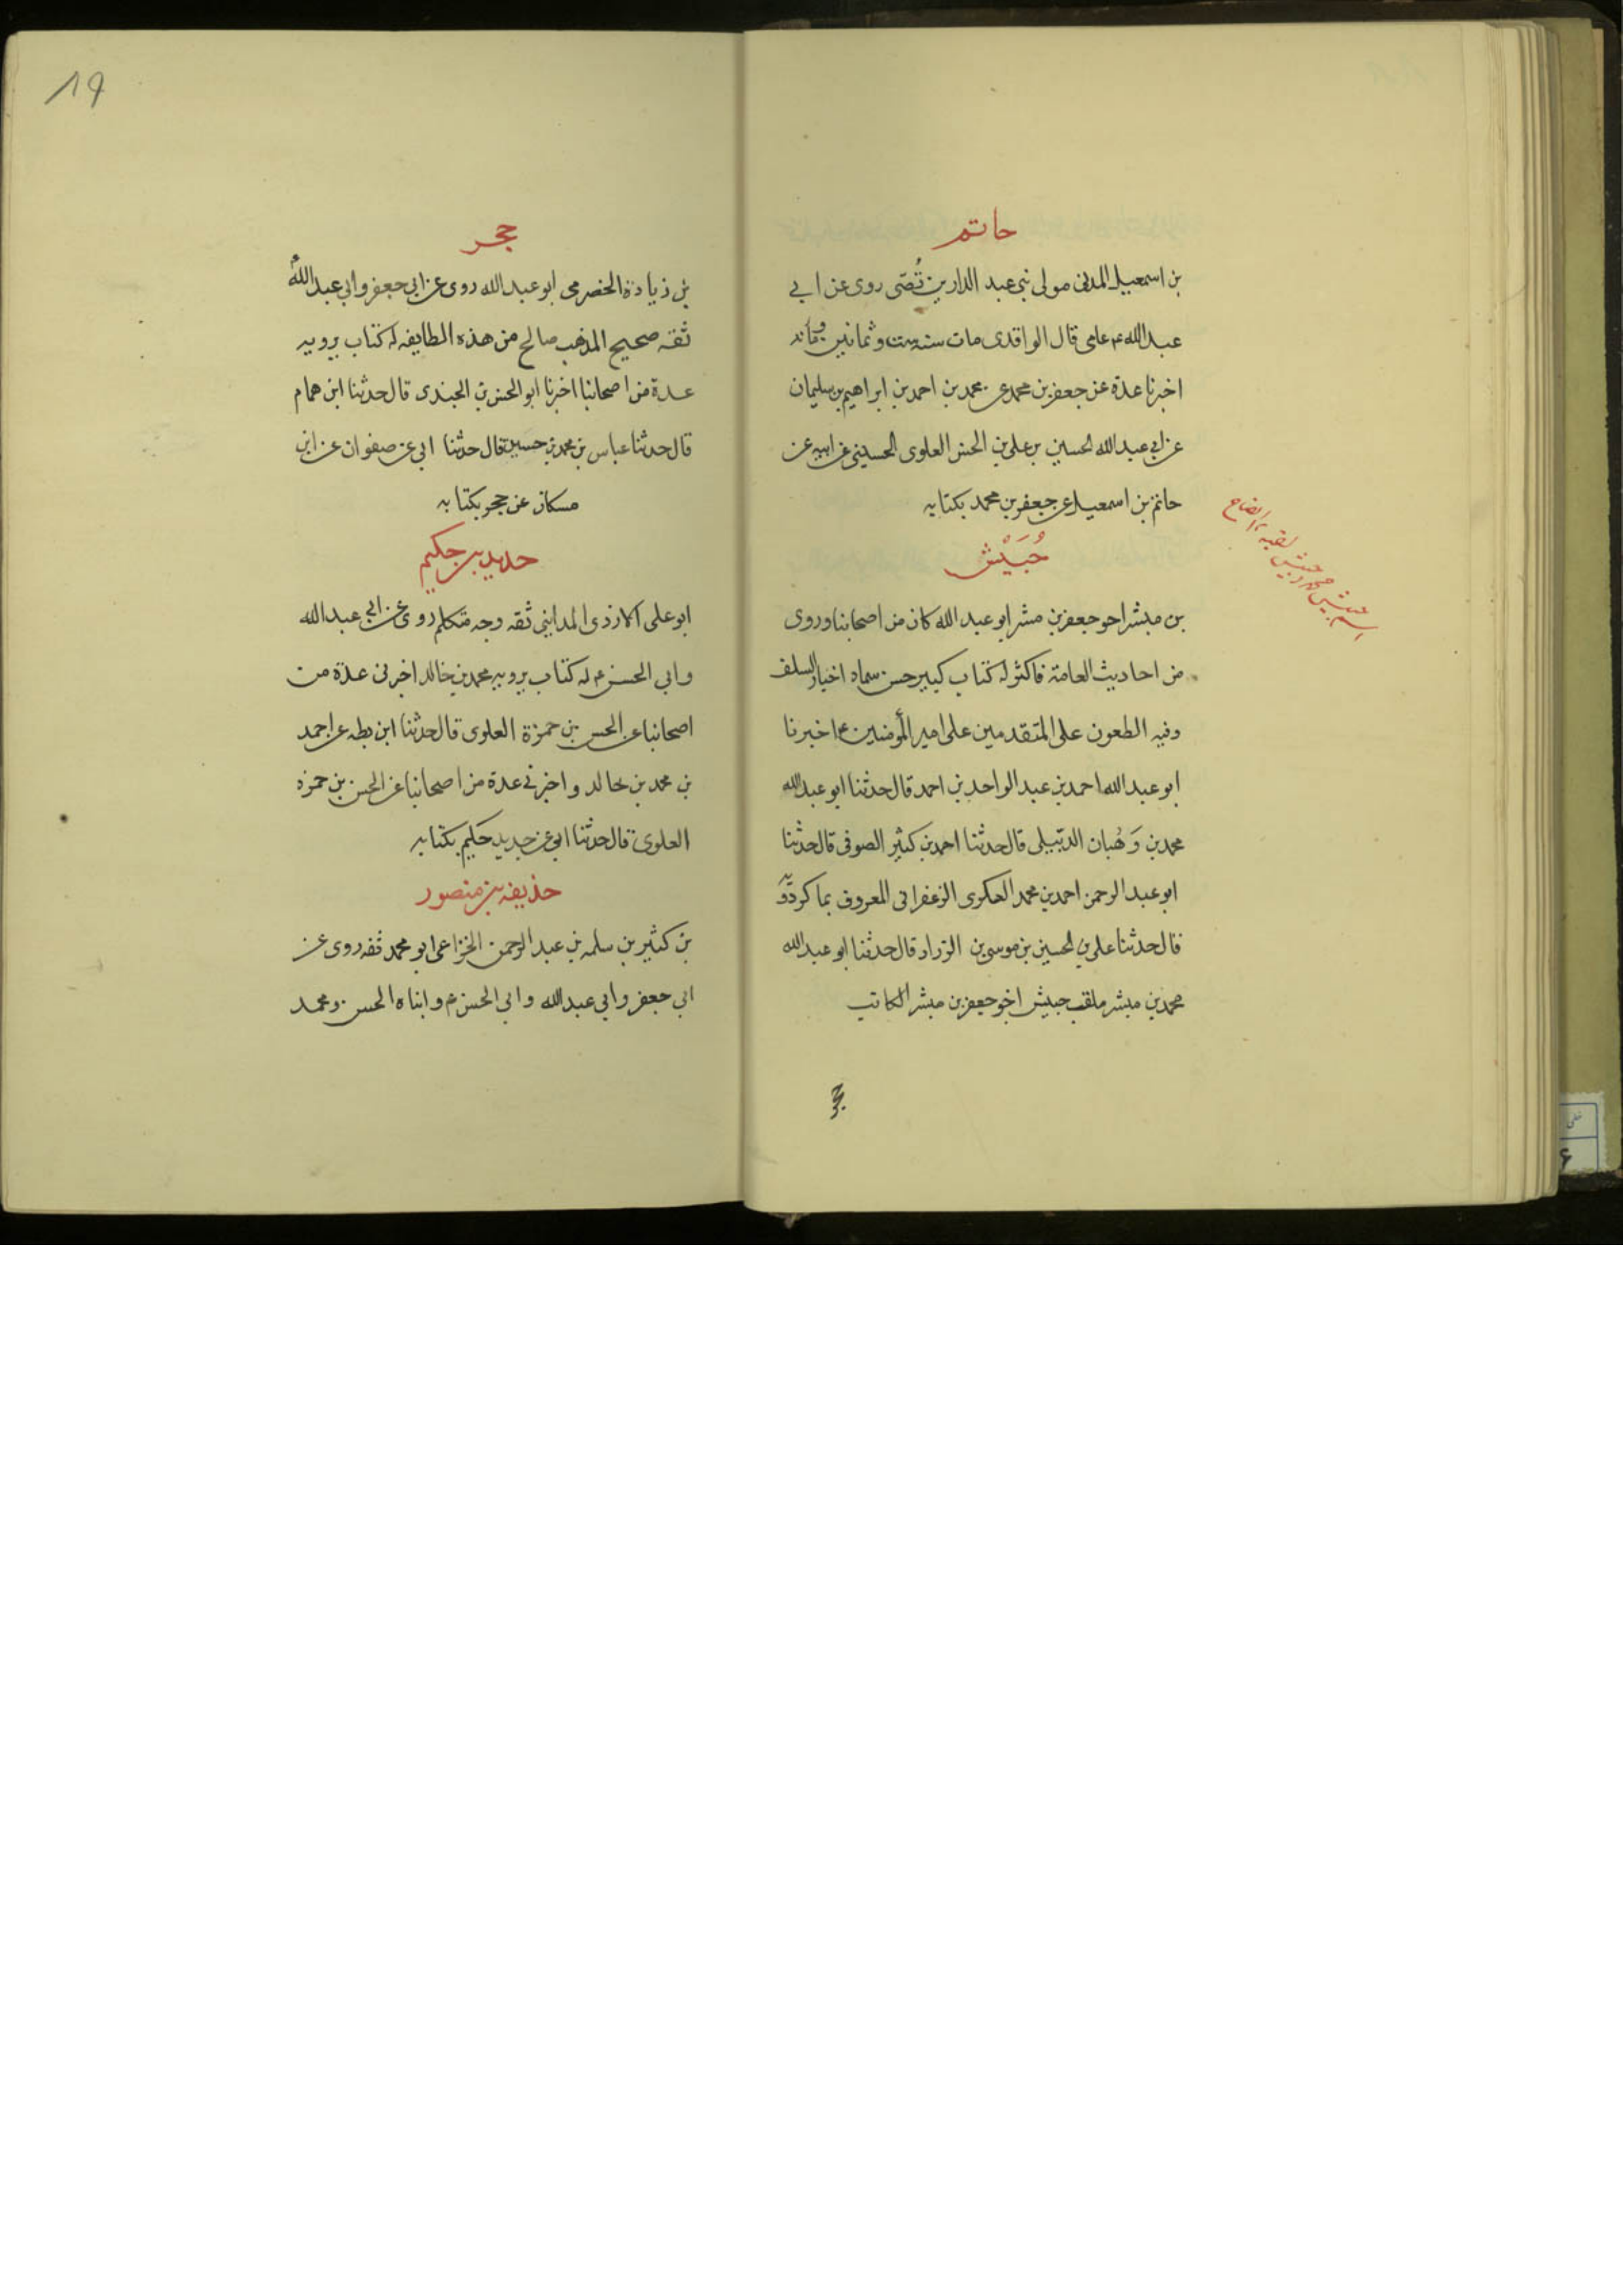 حاتم
بن اسمعيل المدنى مولى بنى عبد الدار بن قُصَى روى عن ابى
عبد الله ع عامى قال الواقدى مات سنه ست وثمانين ومائه
اخبرنا عدة عن جعفر بن محمد عن محمد بن احمد بن ابراهيم بن سليمان
عن ابى عبد الله الحسين بن على بن الحسن العلوى الحسينى عن ابيه عن
حاتم بن اسمعيل عن جعفر بن محمد بكتابه
حُبَيْش
بن مبشر اخو جعفر بن مشر ابو عبد الله كان من اصحابنا وروى
من احاديث العامة فاكثر له كتاب كبير حسن سماه اخبار السلف
وفيه الطعون على المتقدمين على امير المؤمنين ع اخبرنا
ابو عبد الله احمد بن عبد الواحد بن احمد قال حدثنا ابو عبد الله
محمد بن وَهْبان الدبيلى قال حدثنا احمد بن كثير الصوفى قال حدثنا
ابو عبد الرحمن احمد بن محمد العكرى الزعفرانى المعروف بماكردويه
قال حدثنا على بن الحسين بن موسى بن الزراد قال حدثنا ابو عبد الله
محمد بن مبشر ملقب حبيش اخو جعفر بن مبشر الكاتب
حبيش لقبه ايضاح
حجر
١٩
حجر
بن زيادة الحضرمى ابو عبد الله روى عن ابى جعفر وابى عبد الله ع
ثقه صحيح المذهب صالح من هذه الطايفه له كتاب يرويه
عدة من اصحابنا اخبرنا ابو الحسن بن الجندى قال حدثنا ابن همام
قال حدثنا عباس بن محمد بن حسين قال حدثنا ابى عن صفوان عن ابن
مسكان عن حجر بكتابه
حديد بن حكيم
ابو على الازدى المداينى ثقه وجه متكلم روى عن ابى عبد الله
وابى الحسن ع له كتاب يرويه محمد بن خالد اخبرنى عدة من
اصحابنا عن الحسن بن حمزة العلوى قال حدثنا ابن بطه عن احمد
بن محمد بن خالد واخبرنى عدة من اصحابنا عن الحسن بن حمزه
العلوى قال حدثنا ابى عن حديد حكيم بكتابه
حذيفه بن منصور
بن كثير بن سلمه بن عبد الرحمن الخزاعى ابو محمد ثقه روى عن
ابى جعفر وابى عبد الله وابى الحسن ع وابناه الحسن ومحمد